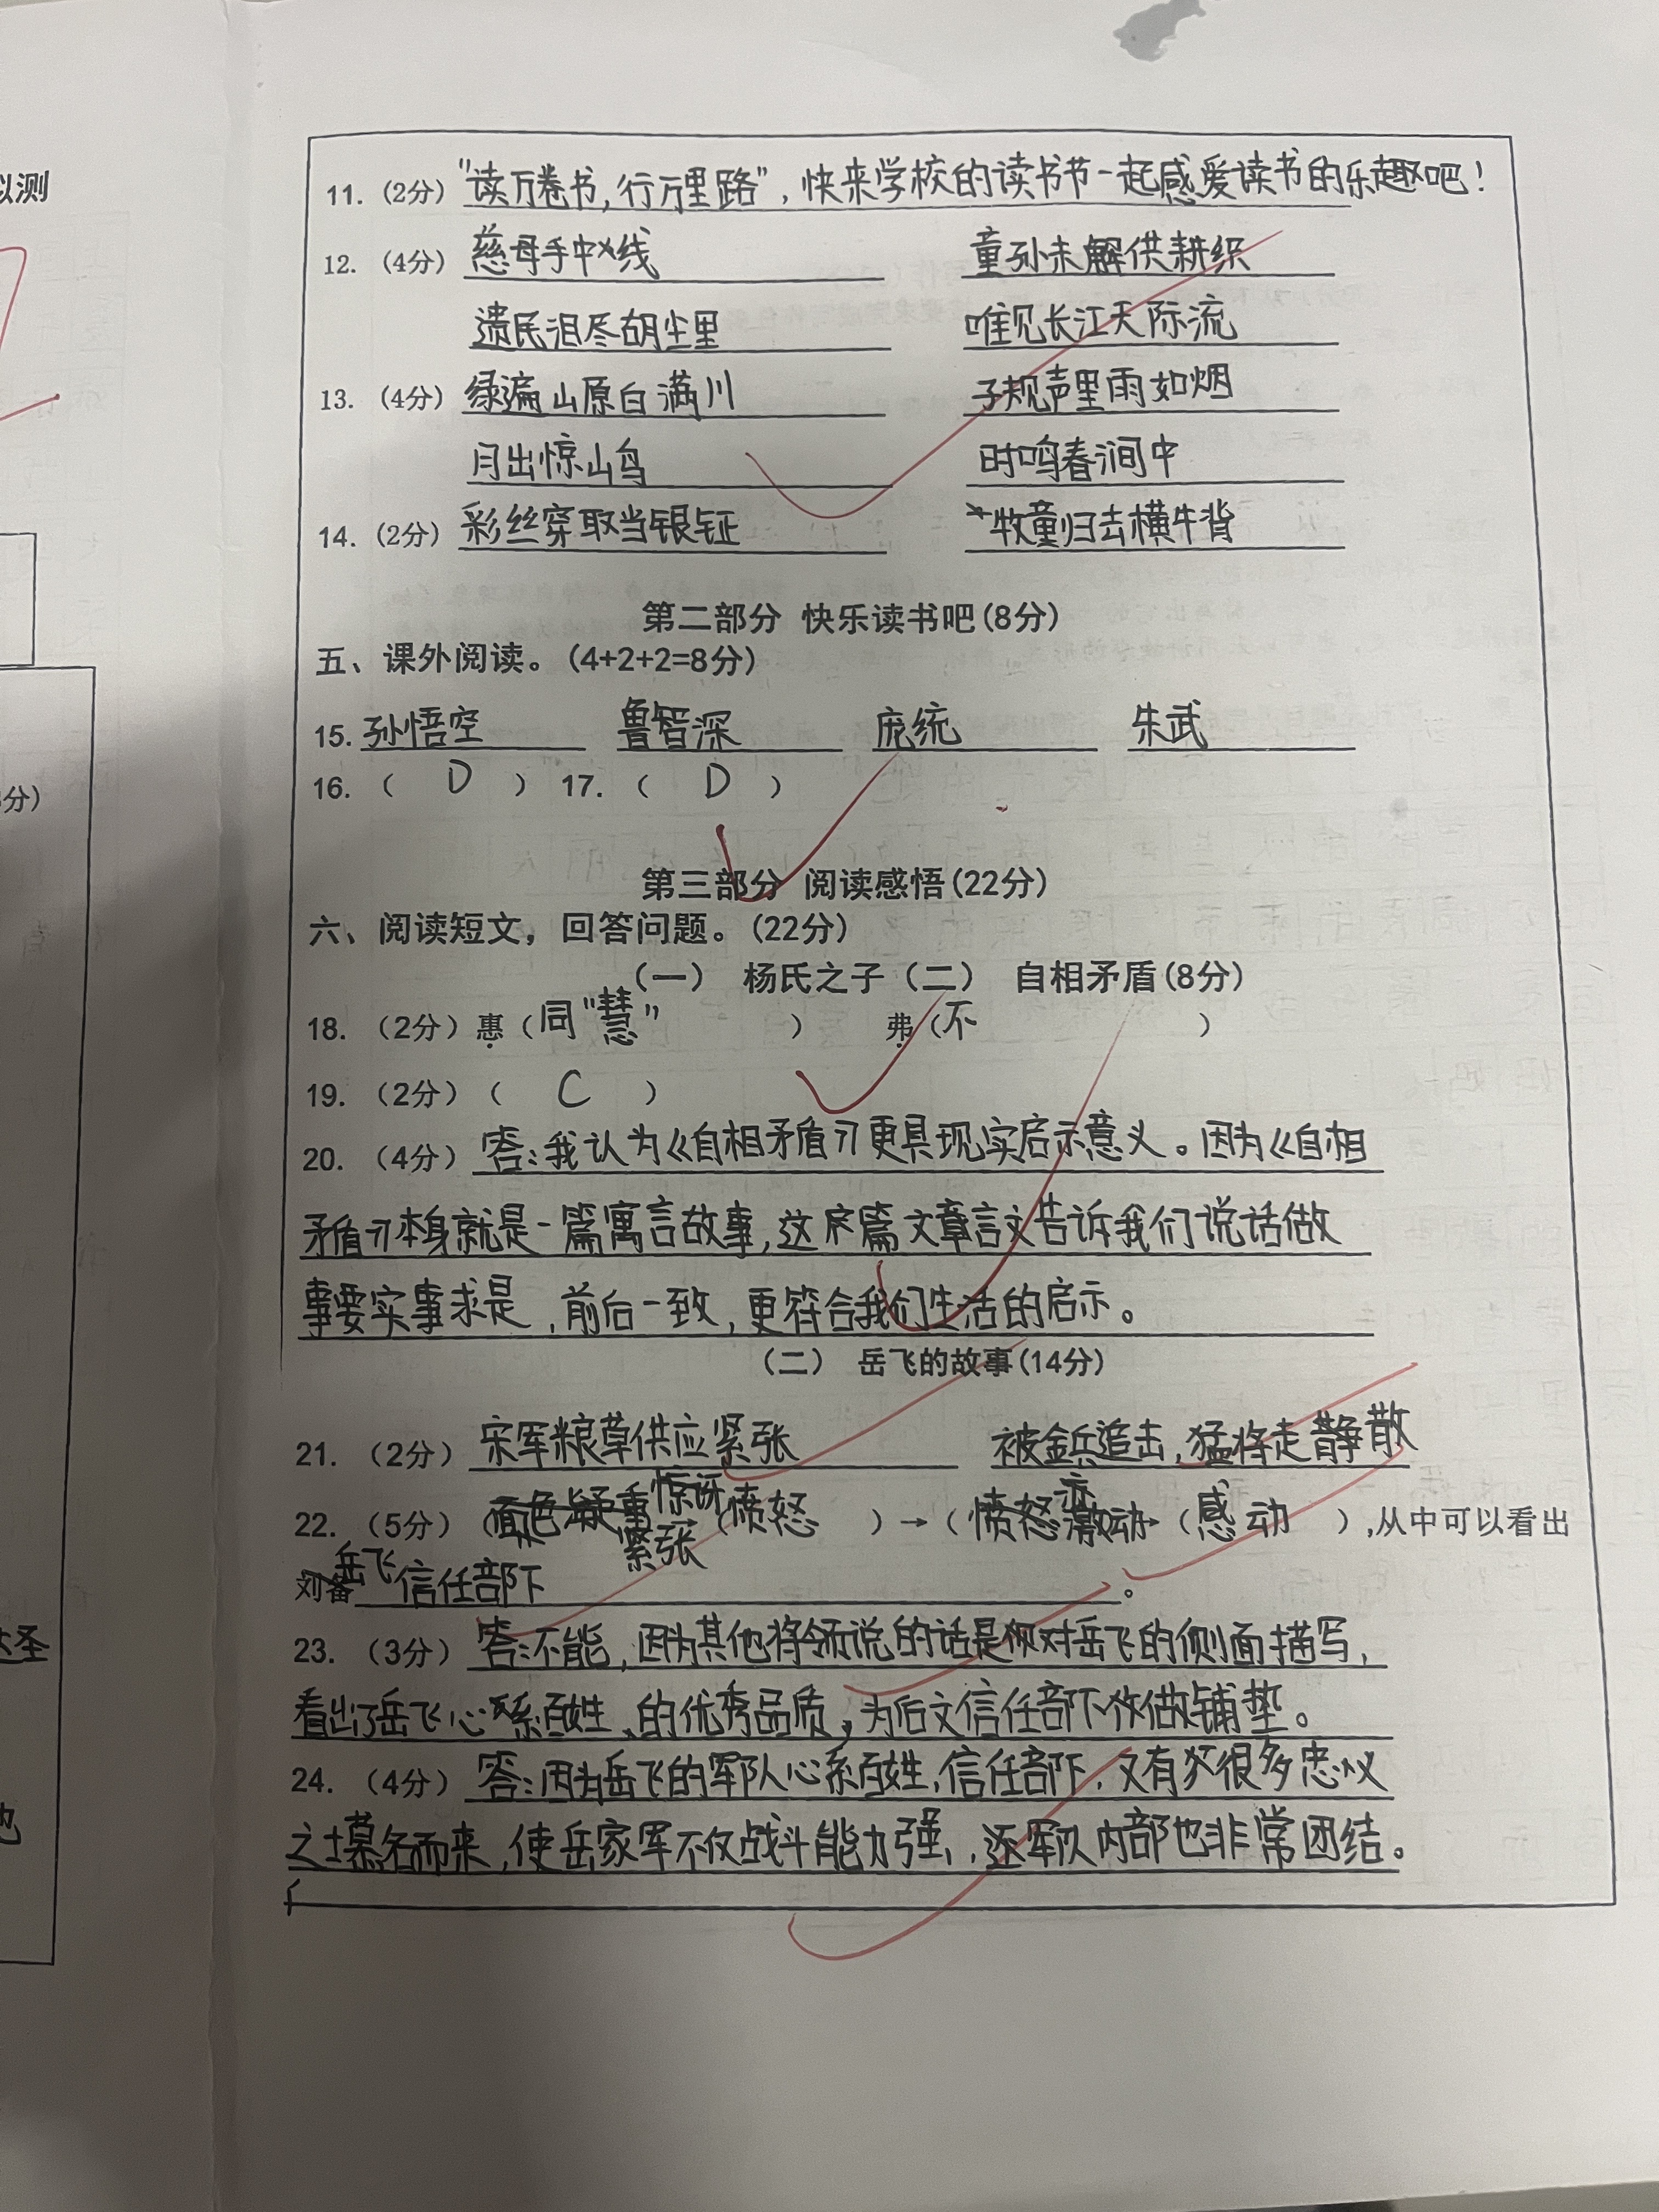 拟测
分)
达圣
也
11. (2分) “读万卷书,行万里路”,快来学校的读书节一起感爱读书的乐趣吧!
12. (4分) 慈母手中线 童孙未解供耕织
遗民泪尽胡尘里 唯见长江天际流
13. (4分) 绿遍山原白满川 子规声里雨如烟
月出惊山鸟 时鸣春涧中
14. (2分) 彩丝穿取当银钲 牧童归去横牛背
第二部分 快乐读书吧(8分)
五、课外阅读。(4+2+2=8分)
15. 孙悟空 鲁智深 庞统 朱武
16. ( D ) 17. ( D )
第三部分 阅读感悟(22分)
六、阅读短文,回答问题。(22分)
(一) 杨氏之子(二) 自相矛盾(8分)
18. (2分)惠(同“慧” ) 弗(不 )
19. (2分)( C )
20. (4分) 答:我认为《自相矛盾》更具现实启示意义。因为《自相
矛盾》本身就是一篇寓言故事,这篇文章言文告诉我们说话做
事要实事求是,前后一致,更符合我们生活的启示。
(二) 岳飞的故事(14分)
21. (2分) 宋军粮草供应紧张 被金兵追击,猛将走散
22. (5分)(面色凝重 惊讶 紧张 →(愤怒 )→( 愤怒 激动→(感动 ),从中可以看出
刘备 岳飞 信任部下 。
23. (3分) 答:不能,因为其他将领说的话是对岳飞的侧面描写,
看出了岳飞心系百姓、的优秀品质,为后文信任部下做铺垫。
24. (4分) 答:因为岳飞的军队心系百姓,信任部下,又有很多忠义
之士慕名而来,使岳家军不仅战斗能力强,还军队内部也非常团结。